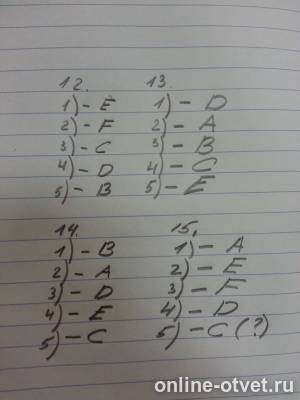 12.
1) - E
2) - F
3) - C
4) - D
5) - B
13.
1) - D
2) - A
3) - B
4) - C
5) - E
14.
1) - B
2) - A
3) - D
4) - E
5) - C
15.
1) - A
2) - E
3) - F
4) - D
5) - C (?)
online-otvet.ru